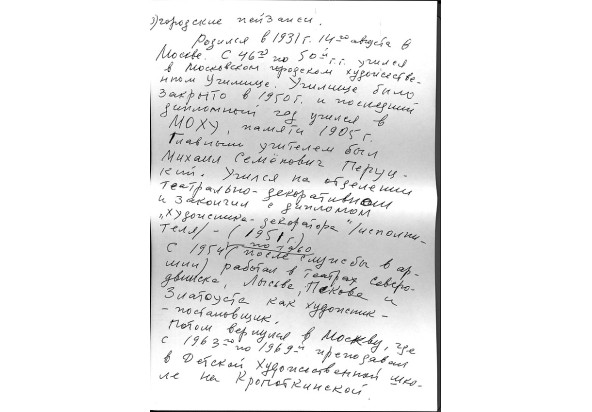 э) городские пейзажи.
Родился в 1931 г. 14го августа в
Москве. С 46го по 50й г.г. учился
в Московском городском художестве-
нном Училище. Училище было
закрыто в 1950 г. и последний
дипломный год учился в
МОХУ, памяти 1905 г.
Главным учителем был
Михаил Семёнович Перуц-
кий. Учился на отделении
театрально-декоративном
и закончил с дипломом
„художника-декоратора"/исполни-
теля/ - (1951 г.)
по 1960
С 1954 (после службы в ар-
мии) работал в театрах Северо-
двинска, Лысьва, Пскова и
Златоуста как художник-
- постановщик.
Потом вернулся в Москву, где
с 1963го по 1969й преподавал
в Детской Художественной шко-
ле на Кропоткинской.